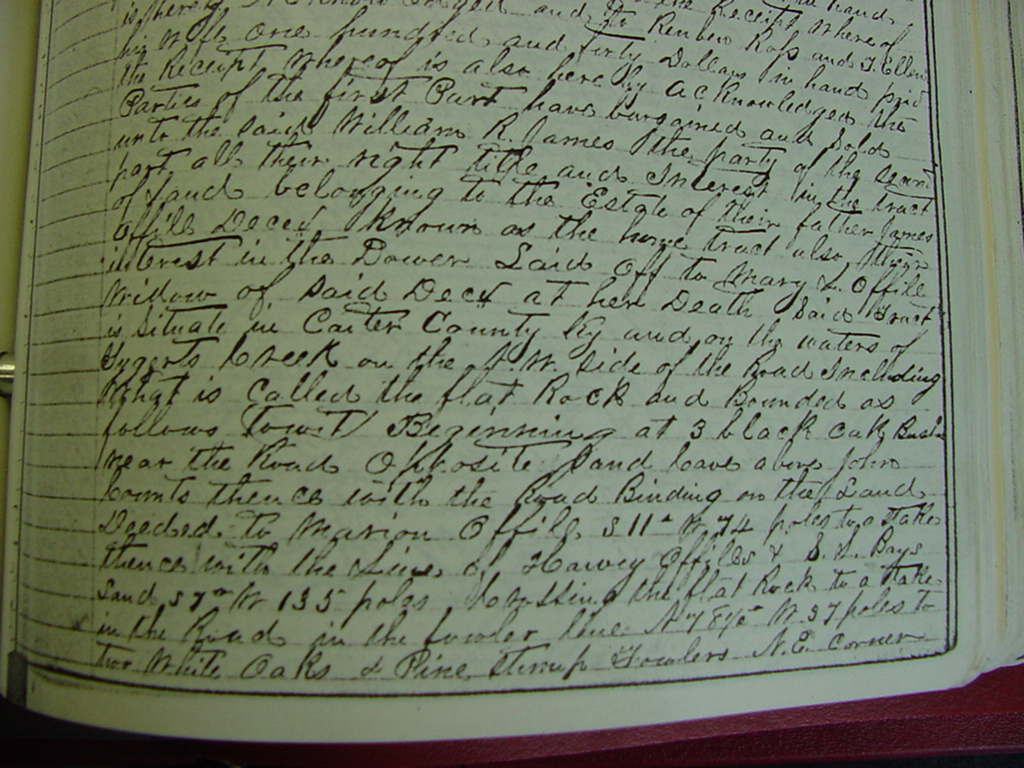 is hereby acknowledged and to Reuben Rabs and J. Ellen
his wife one hundred and fifty Dollars in hand paid
the Receipt whereof is also hereby acknowledged the
Parties of the first Part have bargained and Sold
unto the said William R. James the party of the second
part all their right title and Interest in the tract
of Land belonging to the Estate of their father James
Offill Decd Known as the home tract also their
interest in the Dower Laid off to Mary L. Offill
Widow of said Decd at her Death Said tract
is Situate in Carter County Ky and on the waters of
Tygerts Creek on the N.W. side of the Road Including
What is Called the flat Rock and Bounded as
follows (Towit) Beginning at 3 black oak Bushes
near the Road Opposite Sand Cave above John
Counts thence with the Road Binding on the Land
Deeded to Marion Offill S 11 W 74 poles to a Stake
thence with the Line of Harvey Offills & S. L. Bays
Land S 7 W 135 poles Crossing the flat Rock to a Stake
in the Road in the fowler line N 78½ W 37 poles to
two White Oaks & Pine Stump Fowlers N.E. Corner